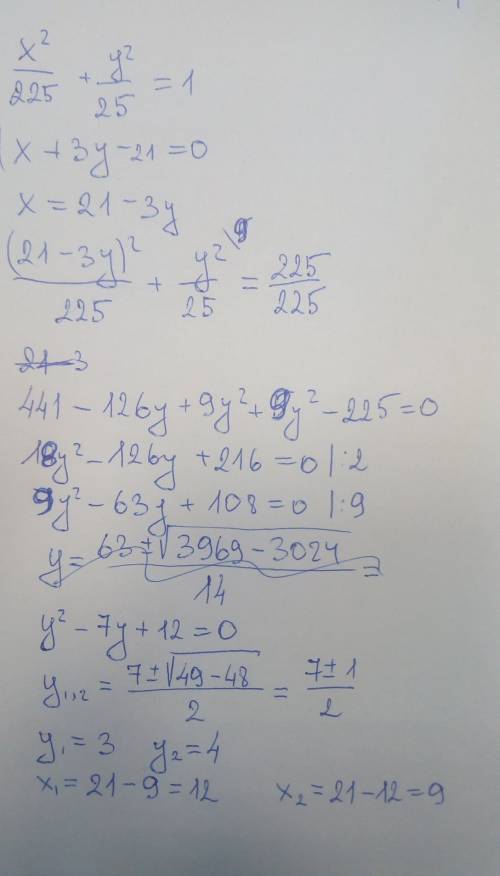 x²/225 + y²/25 = 1
x + 3y - 21 = 0
x = 21 - 3y
(21 - 3y)²/225 + y²/25 \9 = 225/225
21 - 3
441 - 126y + 9y² + 9y² - 225 = 0
18y² - 126y + 216 = 0 |:2
9y² - 63y + 108 = 0 |:9
y = (63 ± √(3969 - 3024))/14 =
y² - 7y + 12 = 0
y₁,₂ = (7 ± √(49 - 48))/2 = (7 ± 1)/2
y₁ = 3 y₂ = 4
x₁ = 21 - 9 = 12 x₂ = 21 - 12 = 9